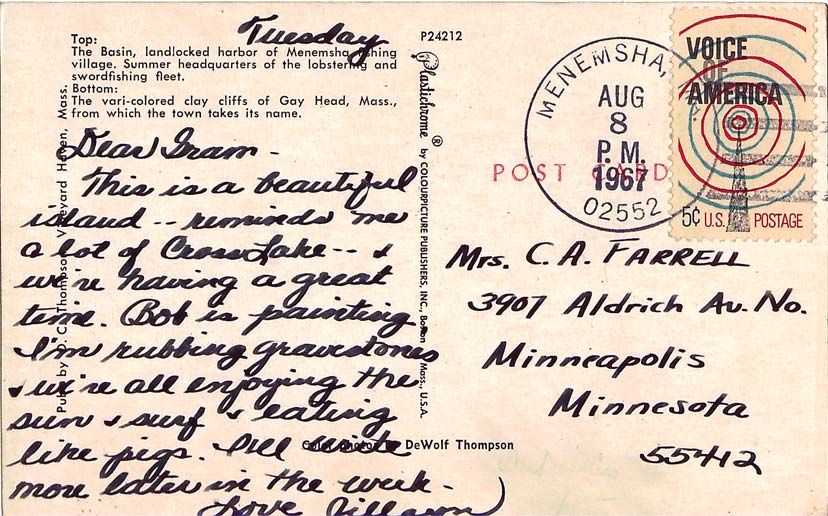 Tuesday
Top:
The Basin, landlocked harbor of Menemsha fishing
village. Summer headquarters of the lobstering and
swordfishing fleet.
Bottom:
The vari-colored clay cliffs of Gay Head, Mass.,
from which the town takes its name.
Dear Gram -
This is a beautiful
island -- reminds me
a lot of Cross Lake -- &
we're having a great
time. Bob is painting
I'm rubbing gravestones
& we're all enjoying the
sun & surf & eating
like pigs. I'll write
more later in the week -
Love
Pub. by D. C. Thompson, Vineyard Haven, Mass.
Color photos by DeWolf Thompson
P24212
Plastichrome ® by COLOURPICTURE PUBLISHERS, INC., Boston, Mass., U.S.A.
POST CARD
MENEMSHA,
AUG
8
P. M.
1967
02552
VOICE
OF
AMERICA
5¢ U.S. POSTAGE
Mrs. C. A. FARRELL
3907 Aldrich Av. No.
Minneapolis
Minnesota
55412